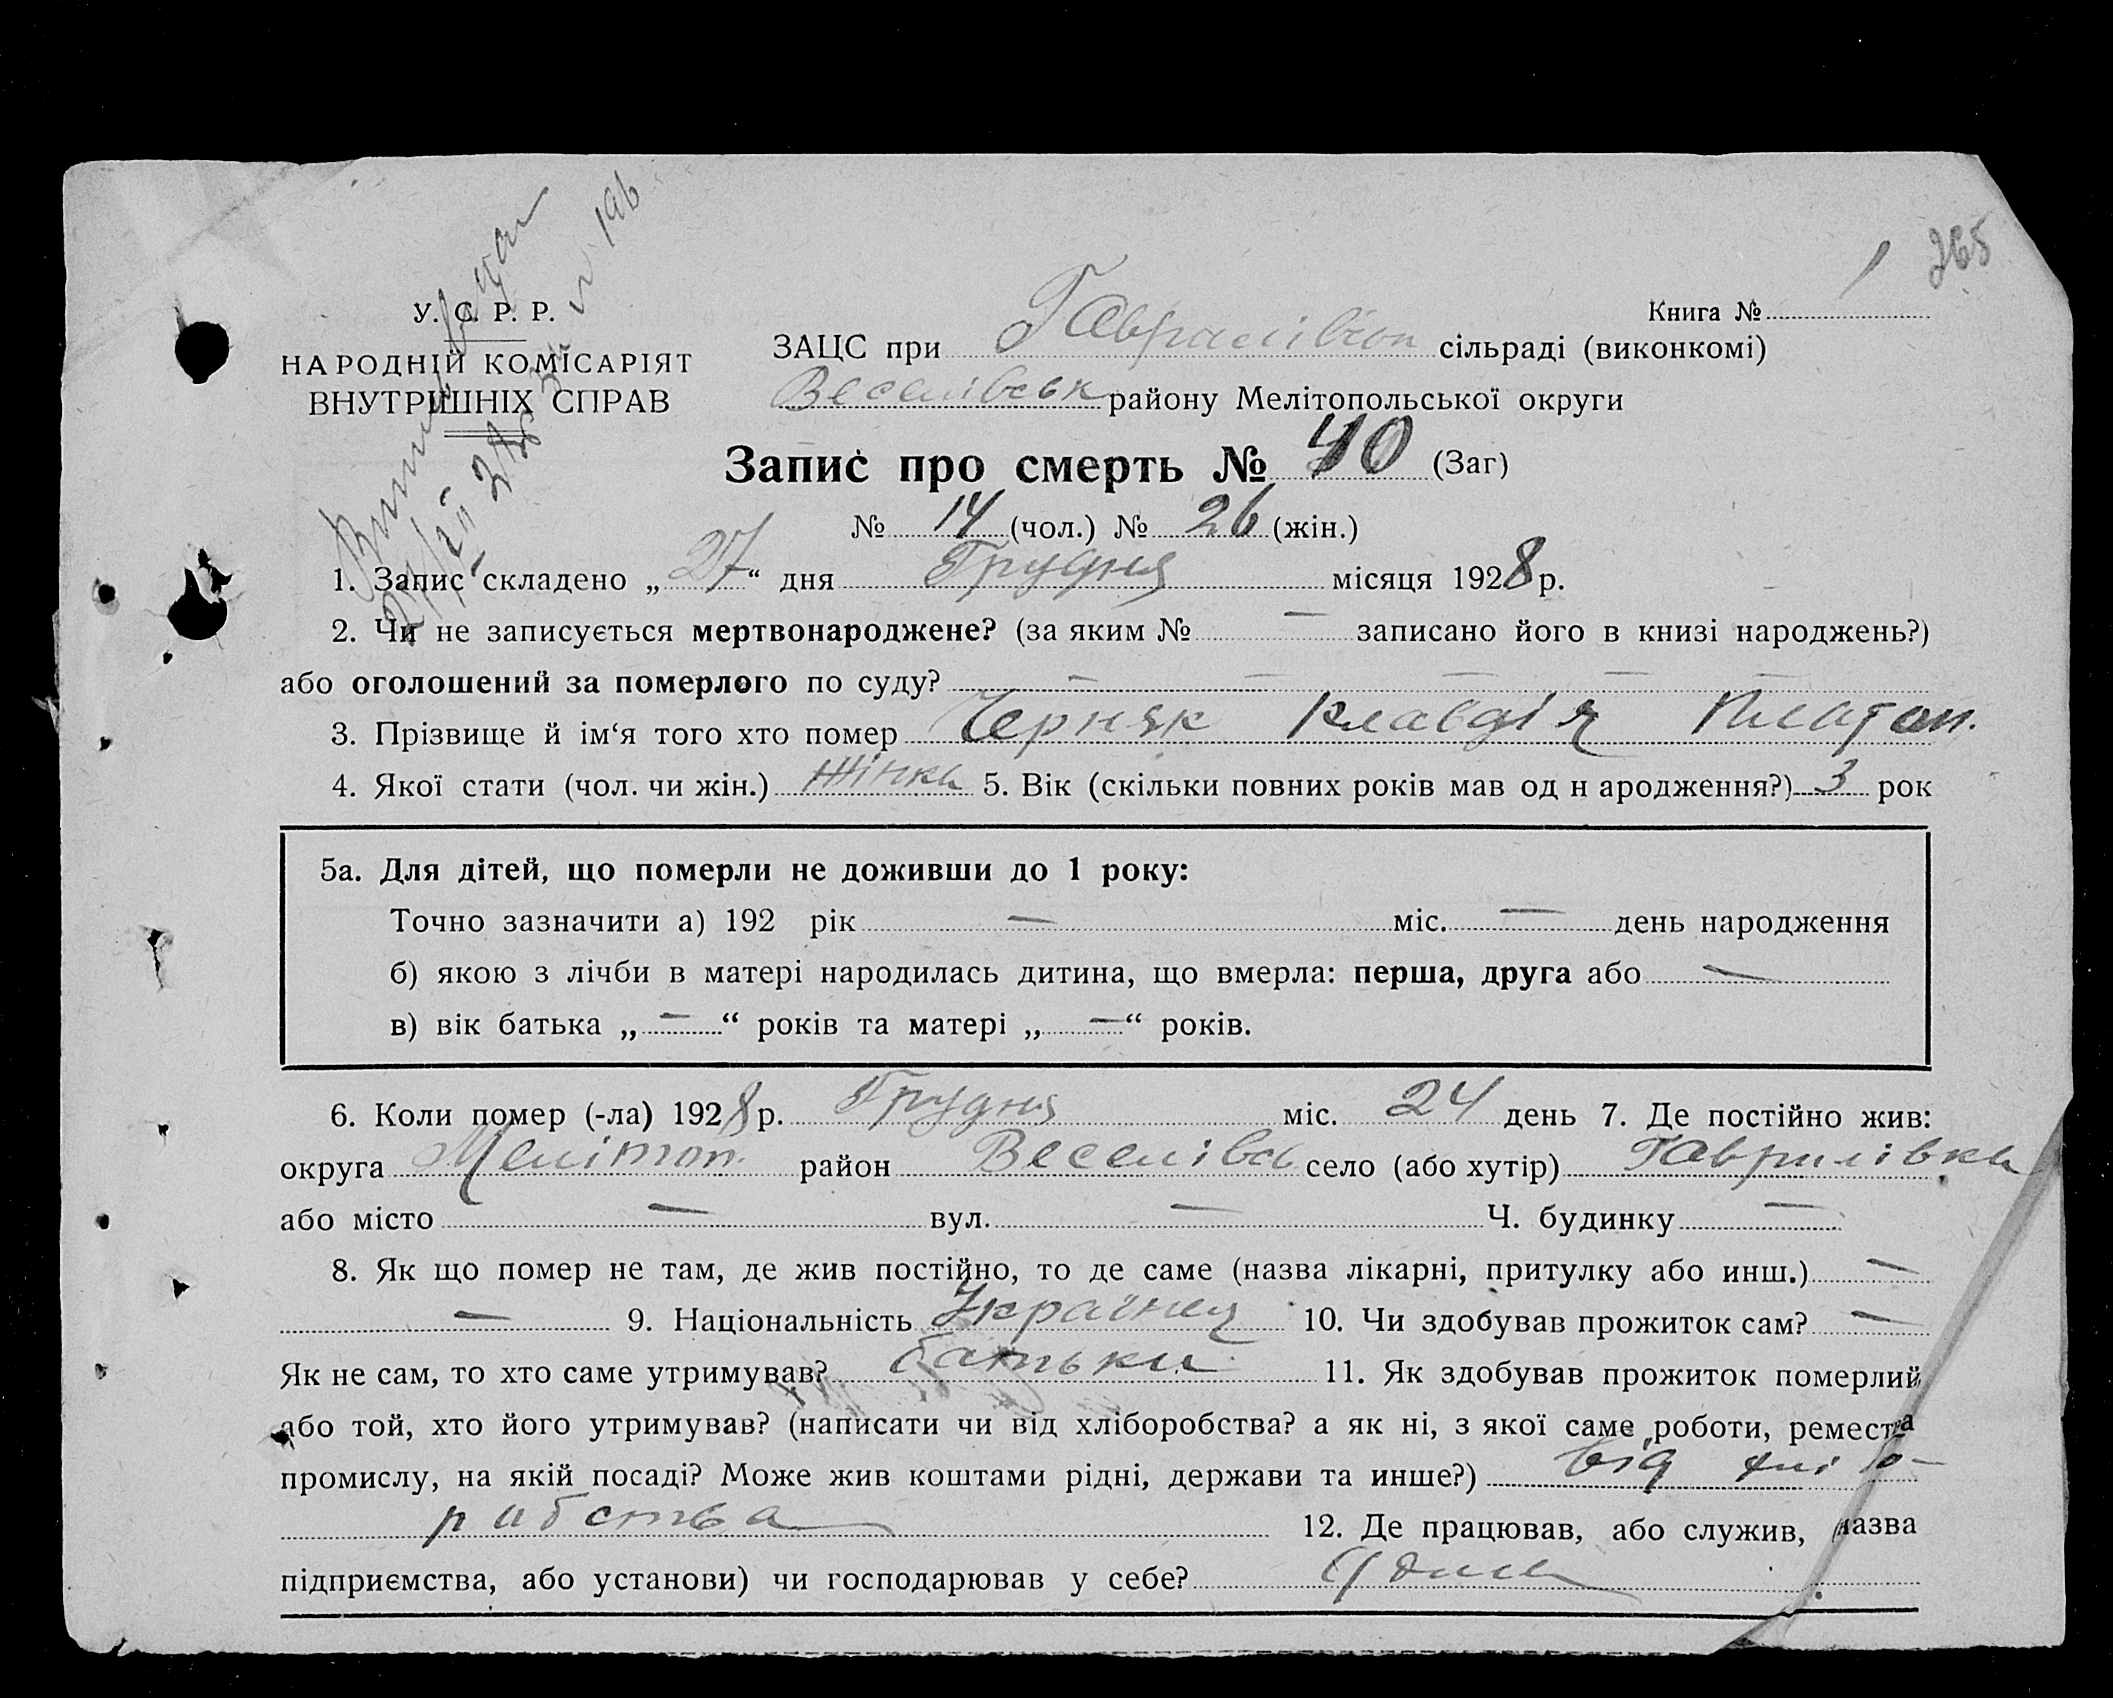 265
У. С. Р. Р.
НАРОДНІЙ КОМІСАРІЯТ
ВНУТРІШНІХ СПРАВ
Книга № 1
ЗАЦС при Гаврилівськ сільраді (виконкомі)
Веселівськ району Мелітопольської округи
Запис про смерть № 40 (Заг)
№ 14 (чол.) № 26 (жін.)
1. Запис складено „27“ дня Грудня місяця 1928 р.
2. Чи не записується мертвонароджене? (за яким № — записано його в книзі народжень?)
або оголошений за померлого по суду? — — — — —
3. Прізвище й ім‘я того хто помер Черняк Клавдія Платон.
4. Якої стати (чол. чи жін.) жінка 5. Вік (скільки повних років мав од н ародження?) 3 рок
5а. Для дітей, що померли не доживши до 1 року:
Точно зазначити а) 192 рік — міс. — день народження
б) якою з лічби в матері народилась дитина, що вмерла: перша, друга або —
в) вік батька „—“ років та матері „—“ років.
6. Коли помер (-ла) 1928 р. Грудня міс. 24 день 7. Де постійно жив:
округа Мелітоп. район Веселівсь село (або хутір) Гаврилівка
або місто — вул. — Ч. будинку —
8. Як що помер не там, де жив постійно, то де саме (назва лікарні, притулку або инш.) —
— 9. Національність Українец 10. Чи здобував прожиток сам? —
Як не сам, то хто саме утримував? батьки 11. Як здобував прожиток померлий
або той, хто його утримував? (написати чи від хліборобства? а як ні, з якої саме роботи, ремества
промислу, на якій посаді? Може жив коштами рідні, держави та инше?) від хлібо-
рабства 12. Де працював, або служив, (назва
підприємства, або установи) чи господарював у себе?